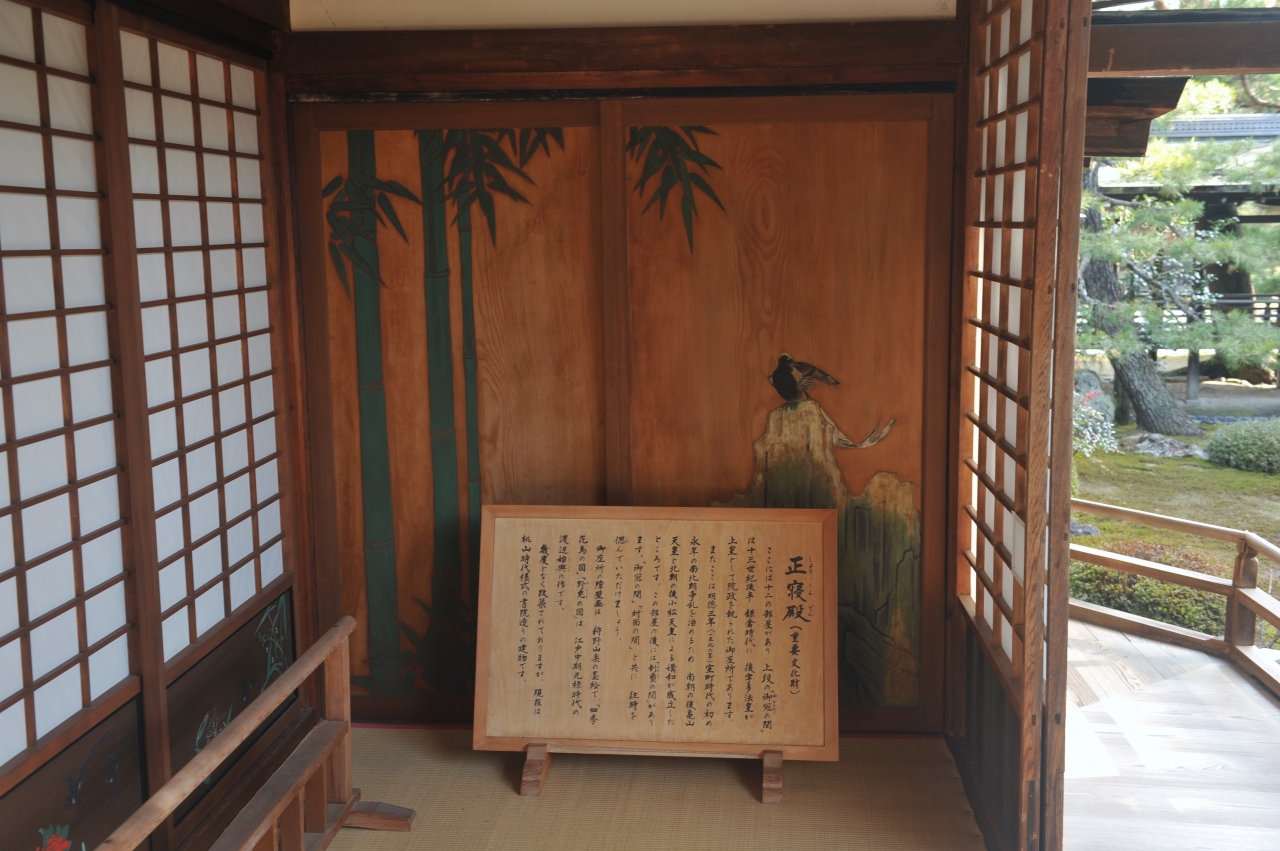 正寝殿(重要文化財)
しょうしんでん
ここには十二の部屋があり 上段の「御冠の間」
は十三世紀後半 鎌倉時代に 後宇多法皇が
上皇として院政を執られた御座所であります。
またここは 明徳三年(一三九二年)室町時代の初め
永年の南北朝争乱を治めるため 南朝の後亀山
天皇と北朝の後小松天皇による媾和が成立した
ところです。この部屋の後には「剣璽の間」があり
ます。「御冠の間」「対面の間」と共に 往時を
偲んでいただけましょう。
御座所の障壁画は 狩野山楽の墨絵で、「四季
花鳥の図」「野兎の図」は 江戸中期元禄時代の
渡辺始興の作です。
幾度となく改築されておりますが、現在は
桃山時代様式の書院造りの建物です。